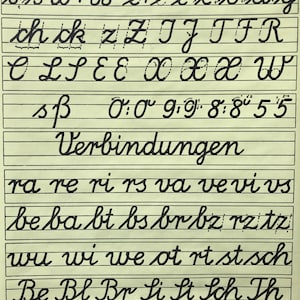 ch ck z Z I J T F R
C L S E E X X X W
s ß O:o 9:9 8:8 5 5
Verbindungen
ra re ri rs va ve vi vs
be ba bt bs br bz rz tz
wu wi we ot rt st sch
Be Bl Br Si St Sch Th